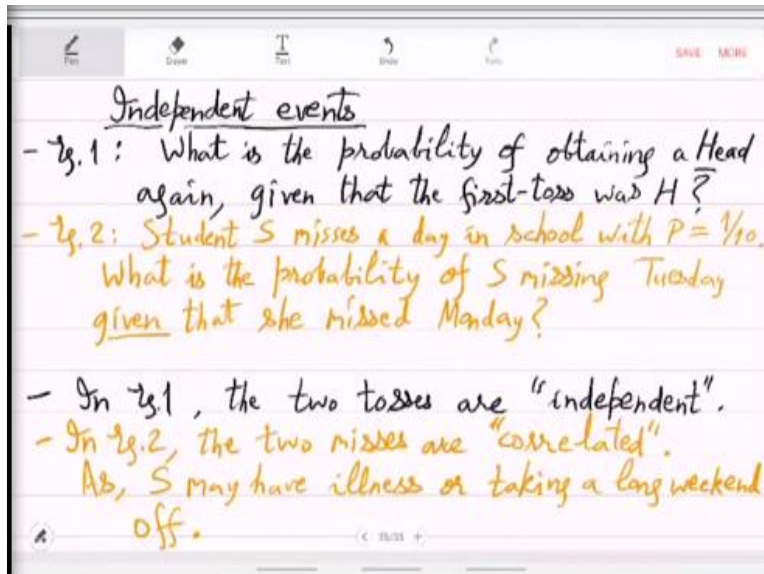 Pen Eraser Text Undo Redo SAVE MORE
Independent events
- Eg.1: What is the probability of obtaining a Head
again, given that the first-toss was H?
- Eg.2: Student S misses a day in school with P = 1/10.
What is the probability of S missing Tuesday
given that she missed Monday?
- In Eg.1, the two tosses are "independent".
- In Eg.2, the two misses are "correlated".
As, S may have illness or taking a long weekend
off.